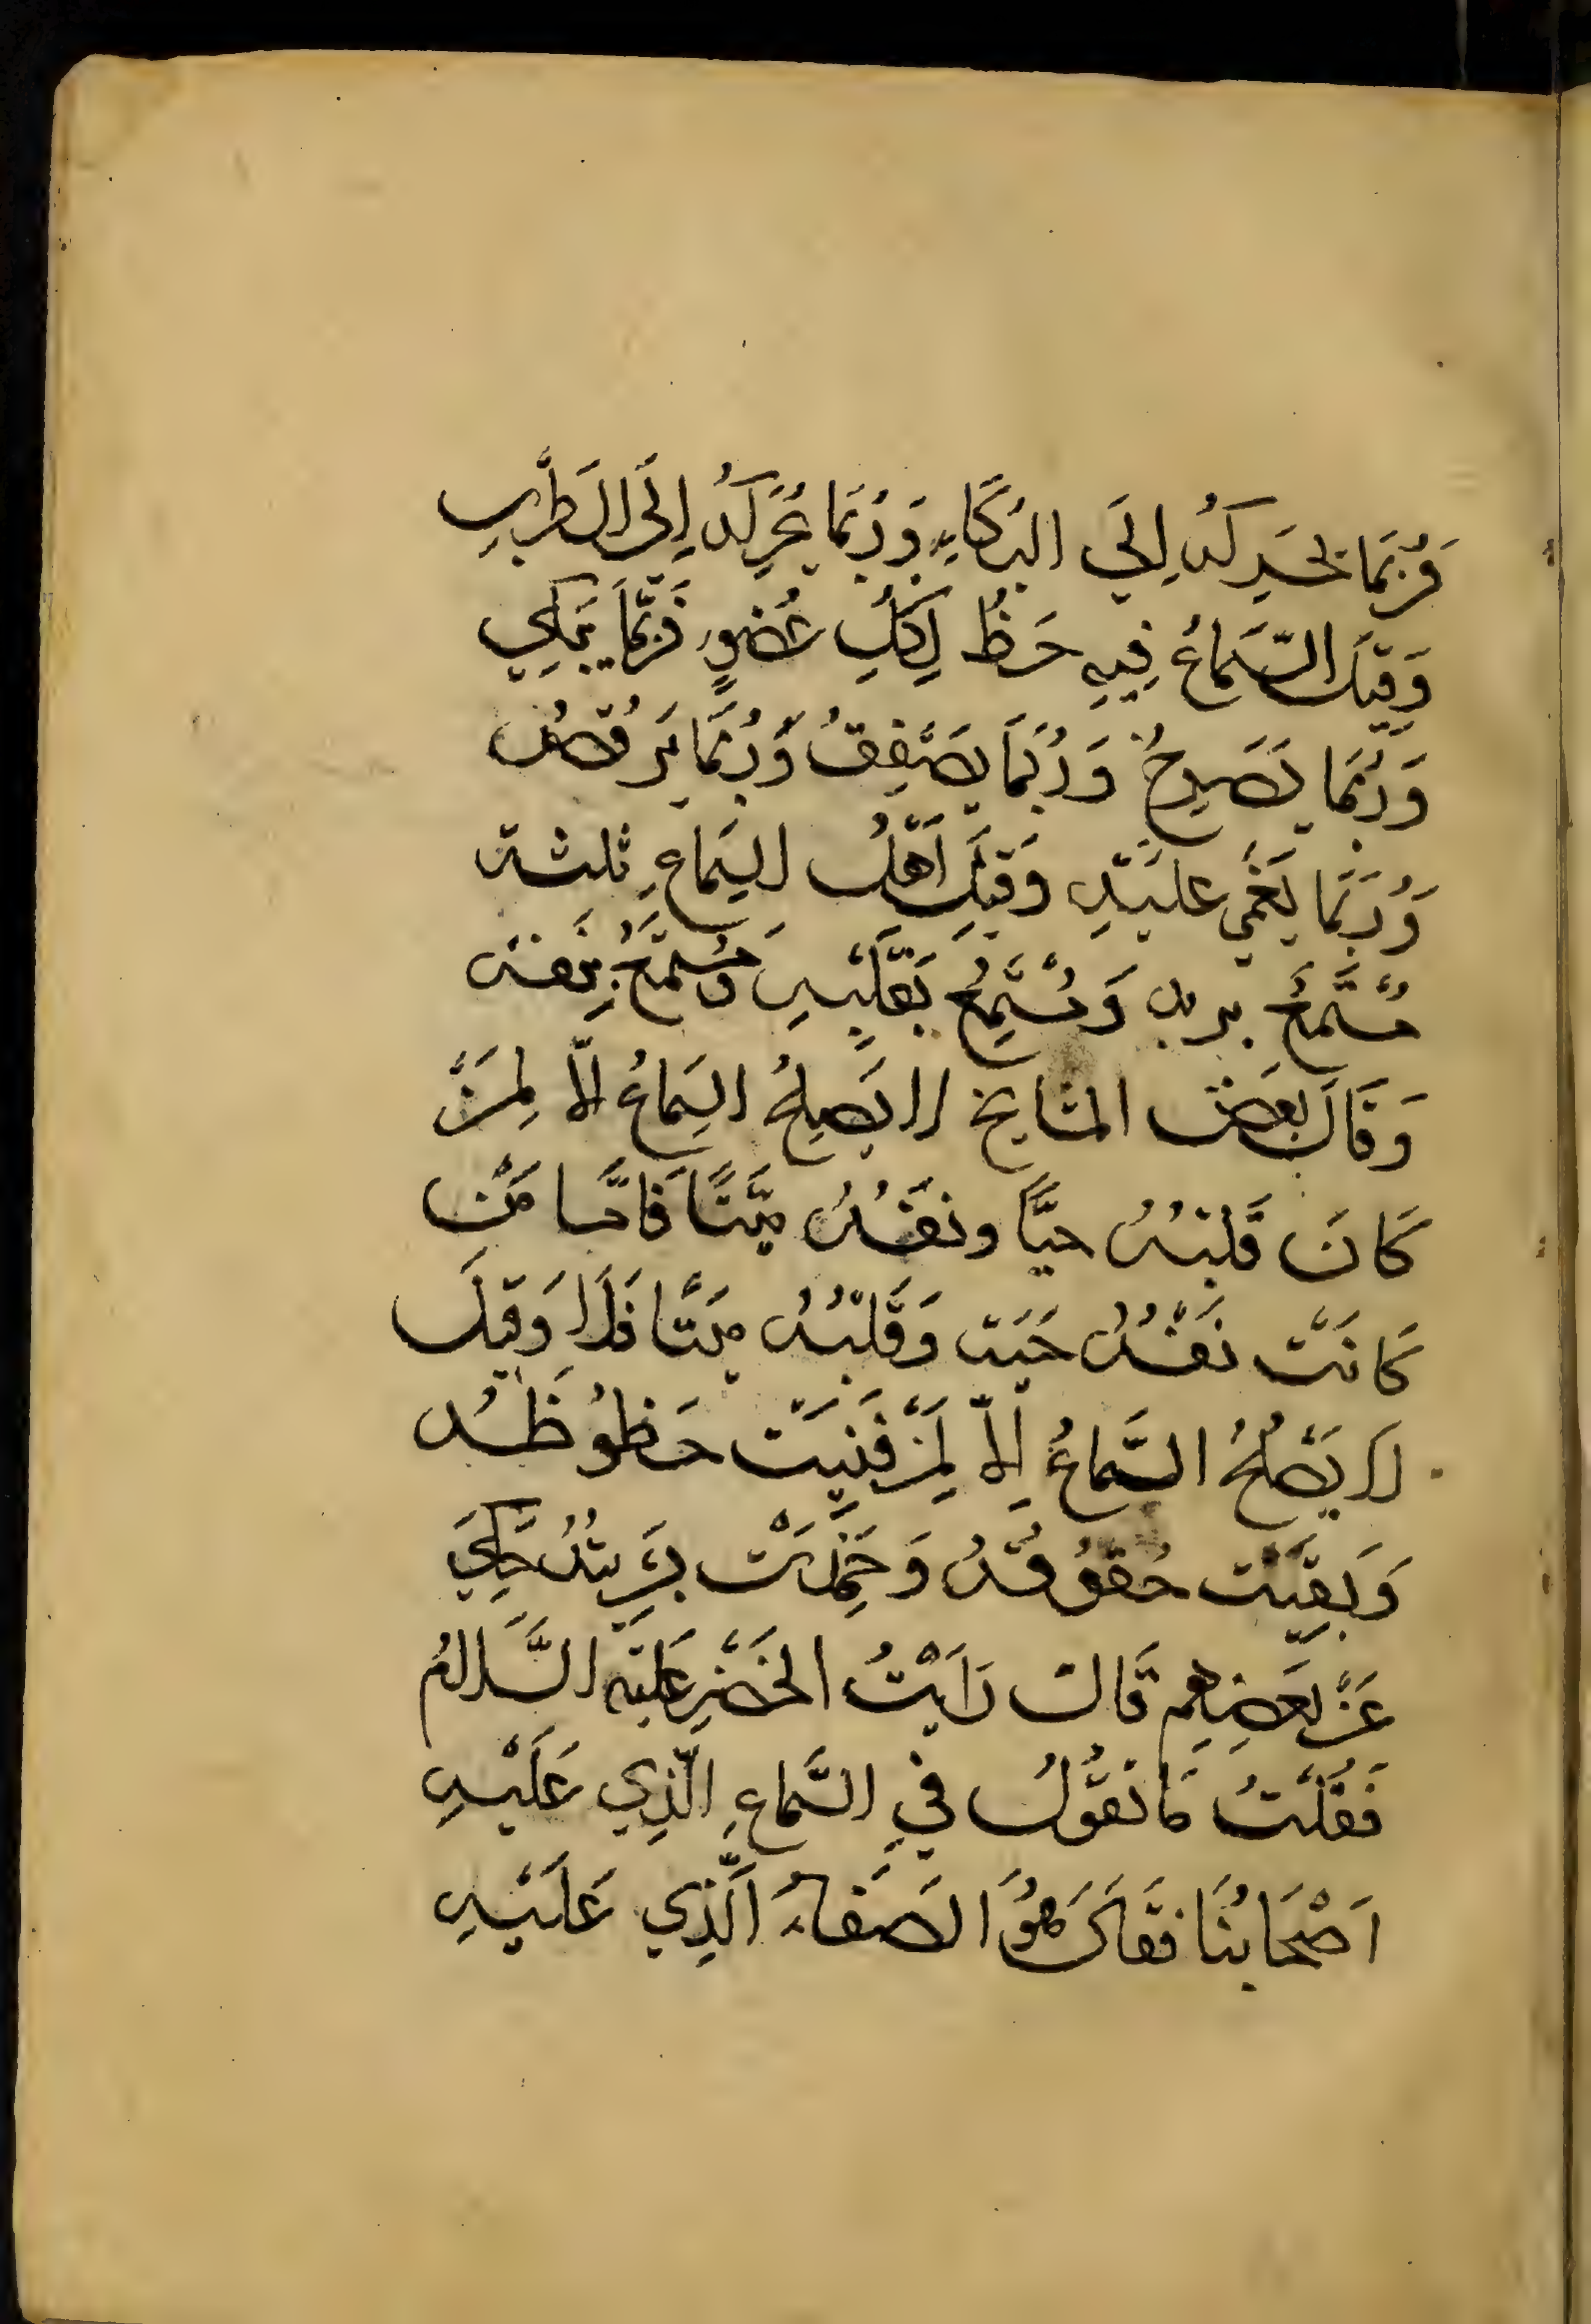 فَرُبَمَا يحَرِكَهُ اِلَي البُكَاءِ وَرُبَمَا يُحَرِّكَهُ اِلَى الطَرَبِ
وَقِيلَ السَّمَاعُ فِيهِ حَظُ لِكُلِ عُضوٍ فَرُبَّمَا يَبكِي
وَرُبَمَا يَصَرِخُ وَرُبَمَا يصَفِقُ وَرُبَمَا يَرقُصُ
وَرُبَمَا يَغمَي عليهِ وَقيلَ اَهْلُ السَمَاعِ ثلثة
مُسْتَمعُ بربه وَمُسْتَمِعُ بَقَلبِهِ وَمُستَمَعُ بِنَفسه
وَقَالَ بَعضُ المشايخ لا يَصلِحُ السَمَاعُ الاّ لِمَنْ
كَانَ قَلبُهُ حيًّا ونفسُهُ ميَّتًا فَامَّا مَن
كَانَتْ نَفْسُهُ حَيَة وَقَلْبُهُ ميَتًا فَلَا وَقيلَ
لَا يَصْلُحُ السَّمَاعُ اِلاّ لِمَنْ فَنِيَتْ حَظُوظُه
وَبَقِيَتْ حُقوُقُهُ وَخَمِدَتْ بَشَرِيتُهُ حَكِيَ
عَنْ بَعَضِهِم قَالَ رَاَيْتُ الخَضْرِ عَلَيهِ السَّلامُ
فَقُلْتُ مَا تقوُلُ في السَّمَاعِ الّذِي عَلَيْهِ
اَصْحَابُنَا فَقَالَ هُوَ الصَفاءُ الَّذِي عَلَيْهِ